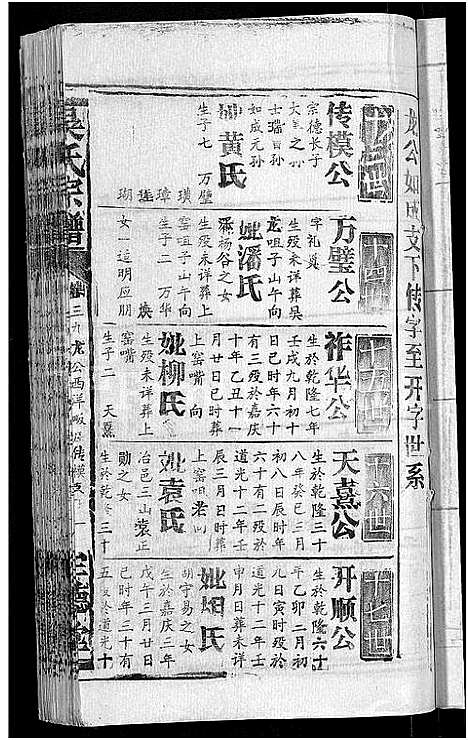 龙公如成文下传字至开字世系
十三世
传模公
宗德长子
大圭之孙
士瑞曾孙
如成元孙
妣黄氏
生子七 万璧
璜
璋
琏
瑚
十四世
万璧公
字礼奠
生殁未详葬吴
龙咀子山午向
妣潘氏
杨谷之女
生殁未详葬上
窑咀子山午向
生子二 万华
焕
女一适明应朋
十五世
祚华公
生於乾隆七年
壬戌九月初十
日巳时年六十
有三殁於嘉庆
十年乙丑十一
月廿日巳时葬
上窑嘴 向
妣柳氏
生殁未详葬上
窑嘴
生子二 天熹
十六世
天熹公
生於乾隆三十
八年癸巳三月
初八日辰时年
六十有二殁於
道光十二年壬
辰三月日时葬
上窑咀老
妣袁氏
冶邑三山袁正
勋之女
生於乾隆三十
十七世
开顺公
生於乾隆六十
年乙卯二月初
九日寅时殁於
道光十二年壬
申月日葬未详
妣胡氏
胡守易之女
生於嘉庆三年
戊午三月廿日
巳时年三十有
五殁於道光十
吴氏宗谱
卷三九